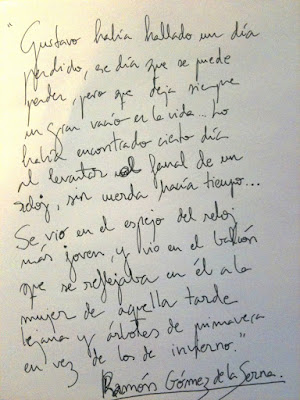 "Gustavo había hallado un día
perdido, ese día que se puede
perder, pero que deja siempre
un gran vacío en la vida... Lo
había encontrado cierto día
al levantar el fanal de un
reloj, sin cuerda hacía tiempo...
Se vio en el espejo del reloj
más joven, y vio en el balcón
que se reflejaba en él a la
mujer de aquella tarde
lejana y árboles de primavera
en vez de los de invierno."
Ramón Gómez de la Serna.